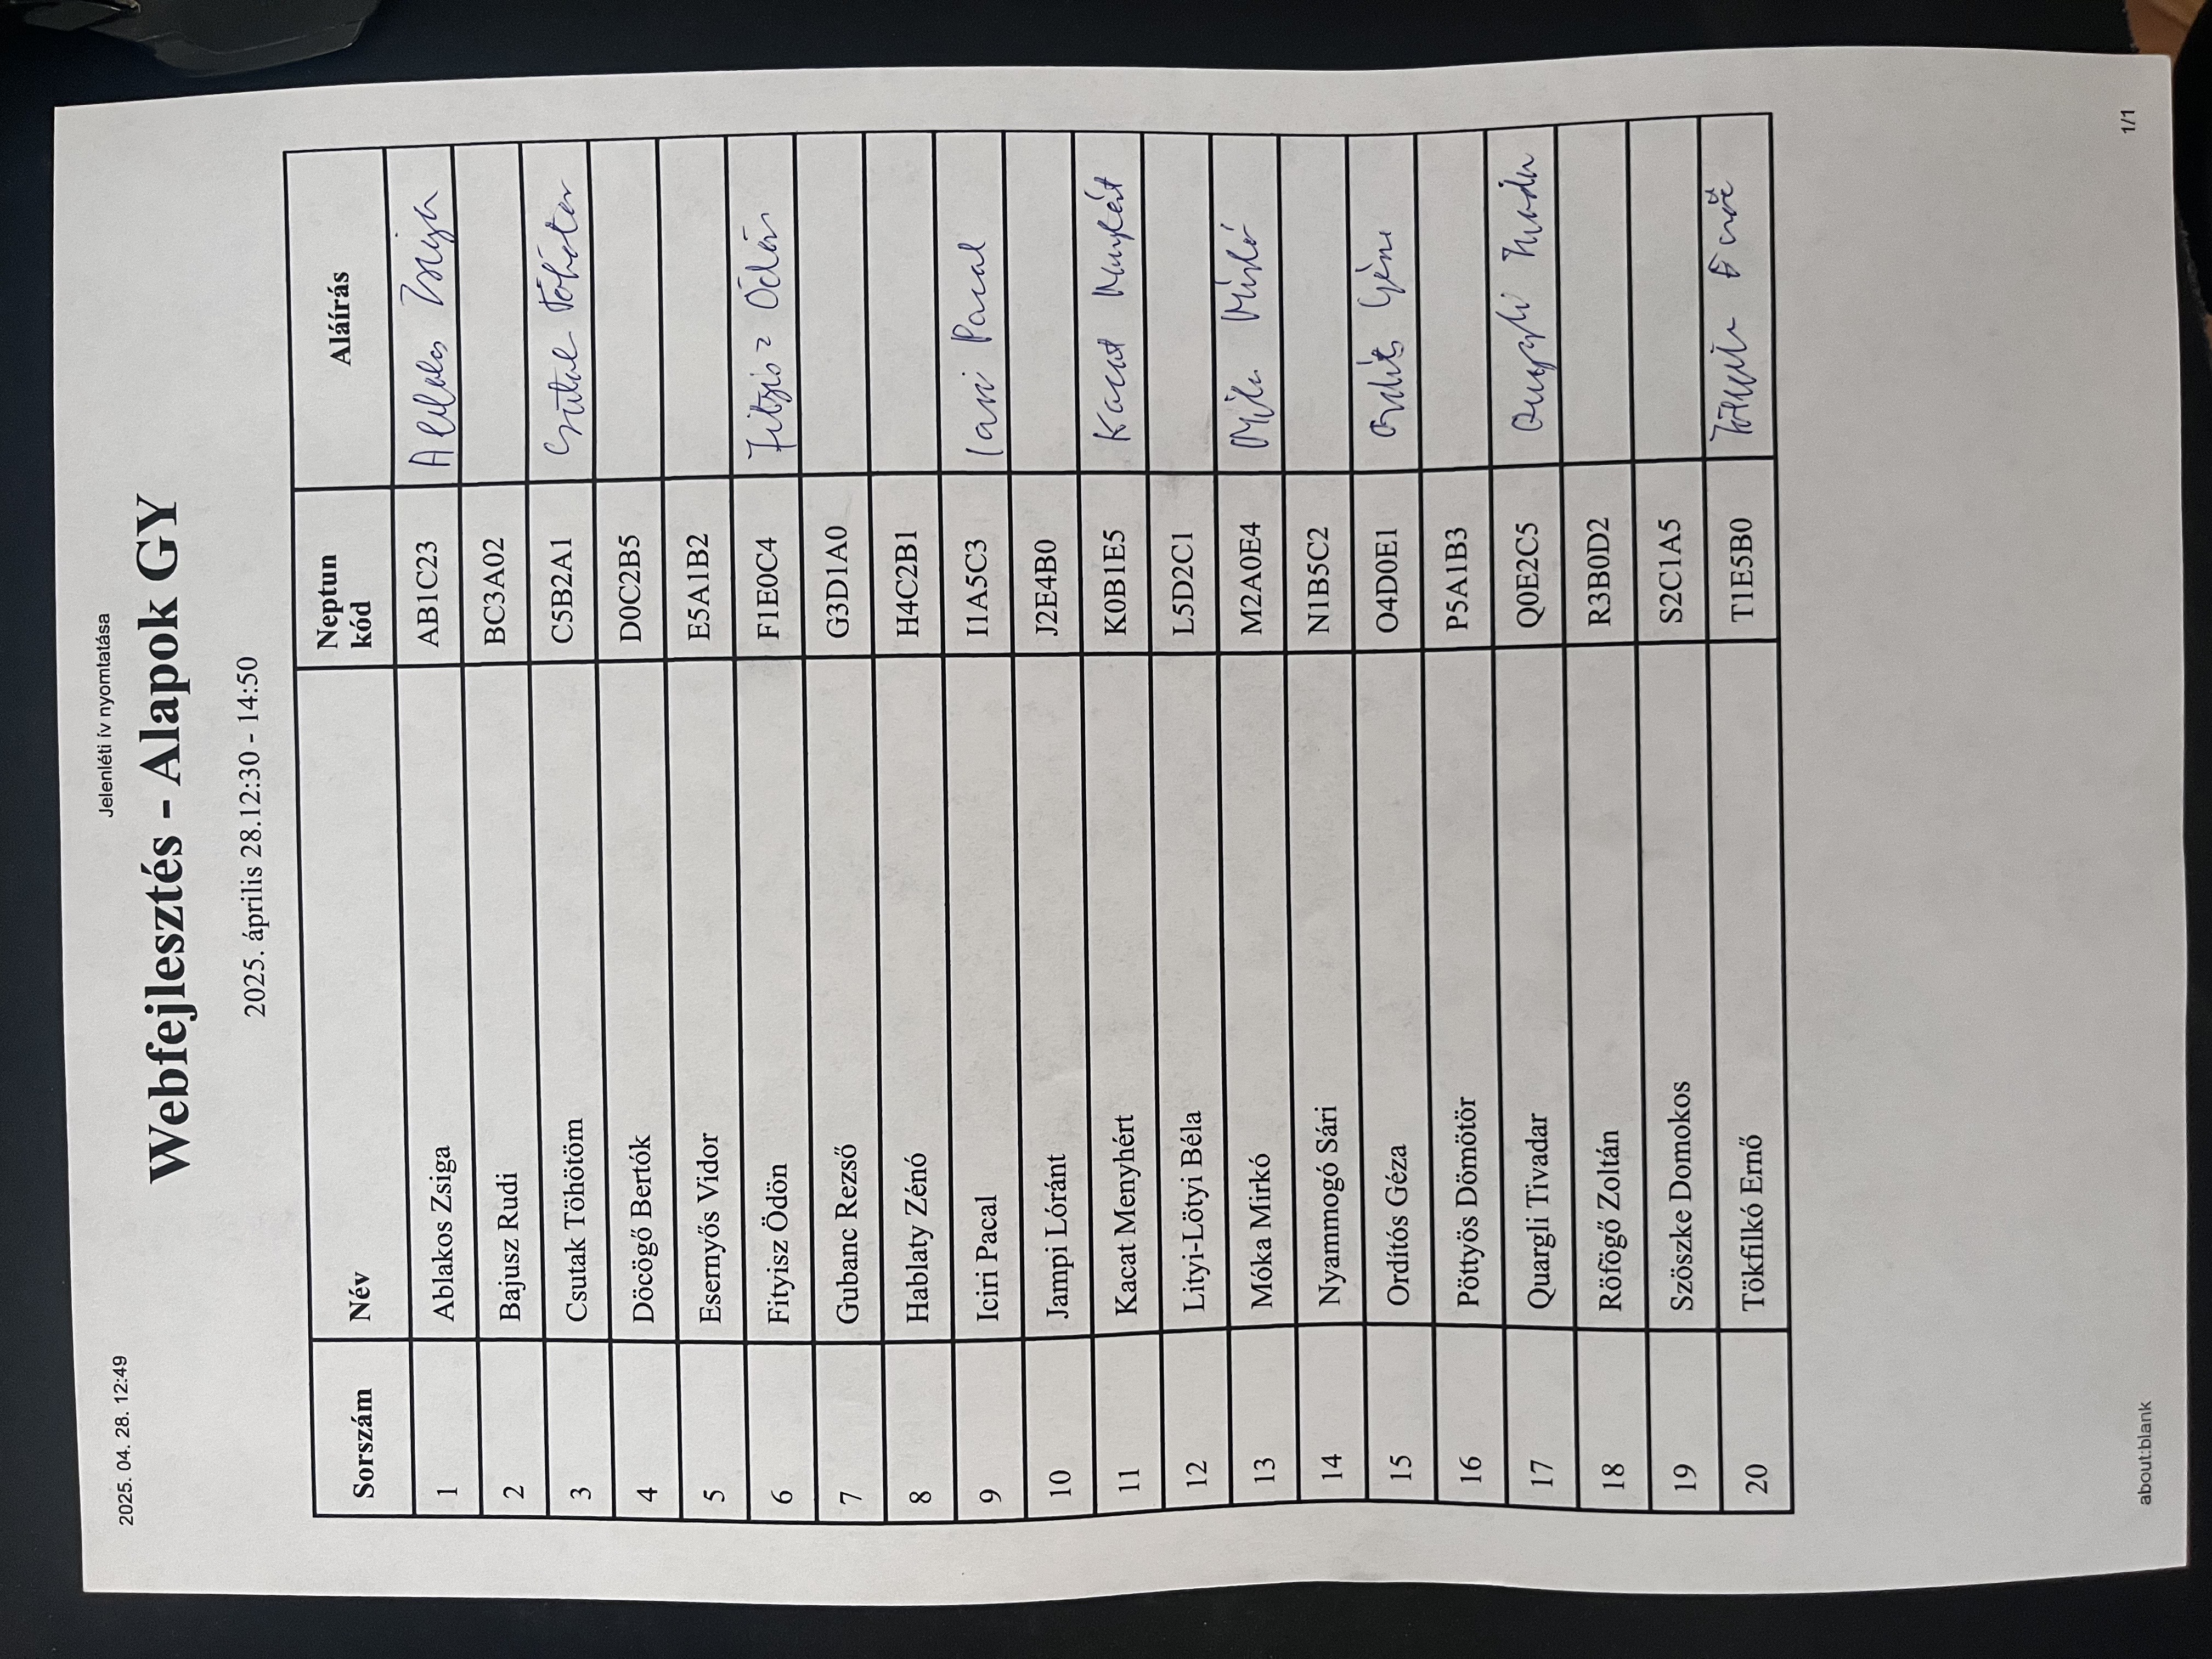 2025. 04. 28. 12:49
Jelenléti ív nyomtatása
Webfejlesztés - Alapok GY
2025. április 28.12:30 - 14:50
Sorszám Név Neptun kód Aláírás
1 Ablakos Zsiga AB1C23 Ablakos Zsiga
2 Bajusz Rudi BC3A02
3 Csutak Töhötöm C5B2A1 Csutak Töhötöm
4 Döcögő Bertók D0C2B5
5 Esernyős Vidor E5A1B2
6 Fityisz Ödön F1E0C4 Fityisz Ödön
7 Gubanc Rezső G3D1A0
8 Hablaty Zénó H4C2B1
9 Iciri Pacal I1A5C3 Iciri Pacal
10 Jampi Lóránt J2E4B0
11 Kacat Menyhért K0B1E5 Kacat Menyhért
12 Lityi-Lötyi Béla L5D2C1
13 Móka Mirkó M2A0E4 Móka Mirkó
14 Nyammogó Sári N1B5C2
15 Ordítós Géza O4D0E1 Ordítós Géza
16 Pöttyös Dömötör P5A1B3
17 Quargli Tivadar Q0E2C5 Quargli Tivadar
18 Röfögő Zoltán R3B0D2
19 Szöszke Domokos S2C1A5
20 Tökfilkó Ernő T1E5B0 Tökfilkó Ernő
about:blank
1/1